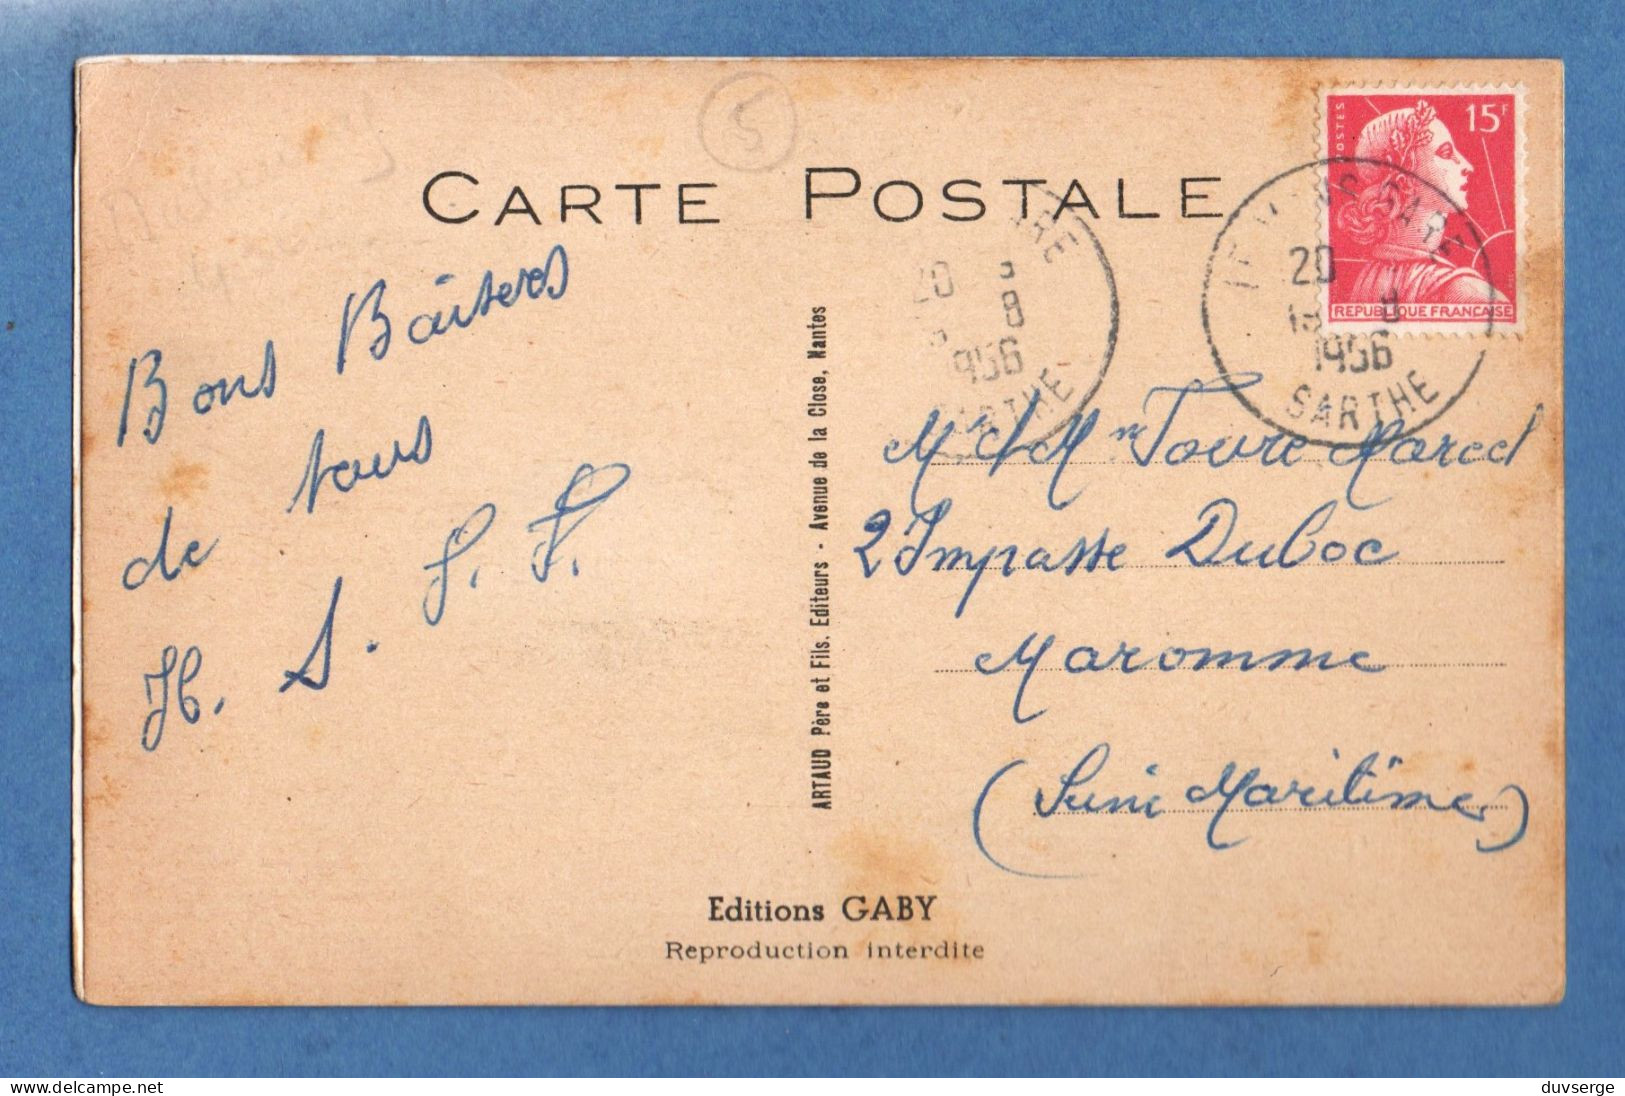 5
CARTE POSTALE
POSTES
15F
REPUBLIQUE FRANÇAISE
LE MANS GARE
20
8
1956
SARTHE
20
8
1956
SARTHE
Bons Baisers
de tous
H. S. J. F.
ARTAUD Père et Fils. Editeurs - Avenue de la Close, Nantes
Mr & Mme Marcel
2 Impasse Duboc
Maromme
(Seine Maritime)
Editions GABY
Reproduction interdite
www.delcampe.net
duvserge